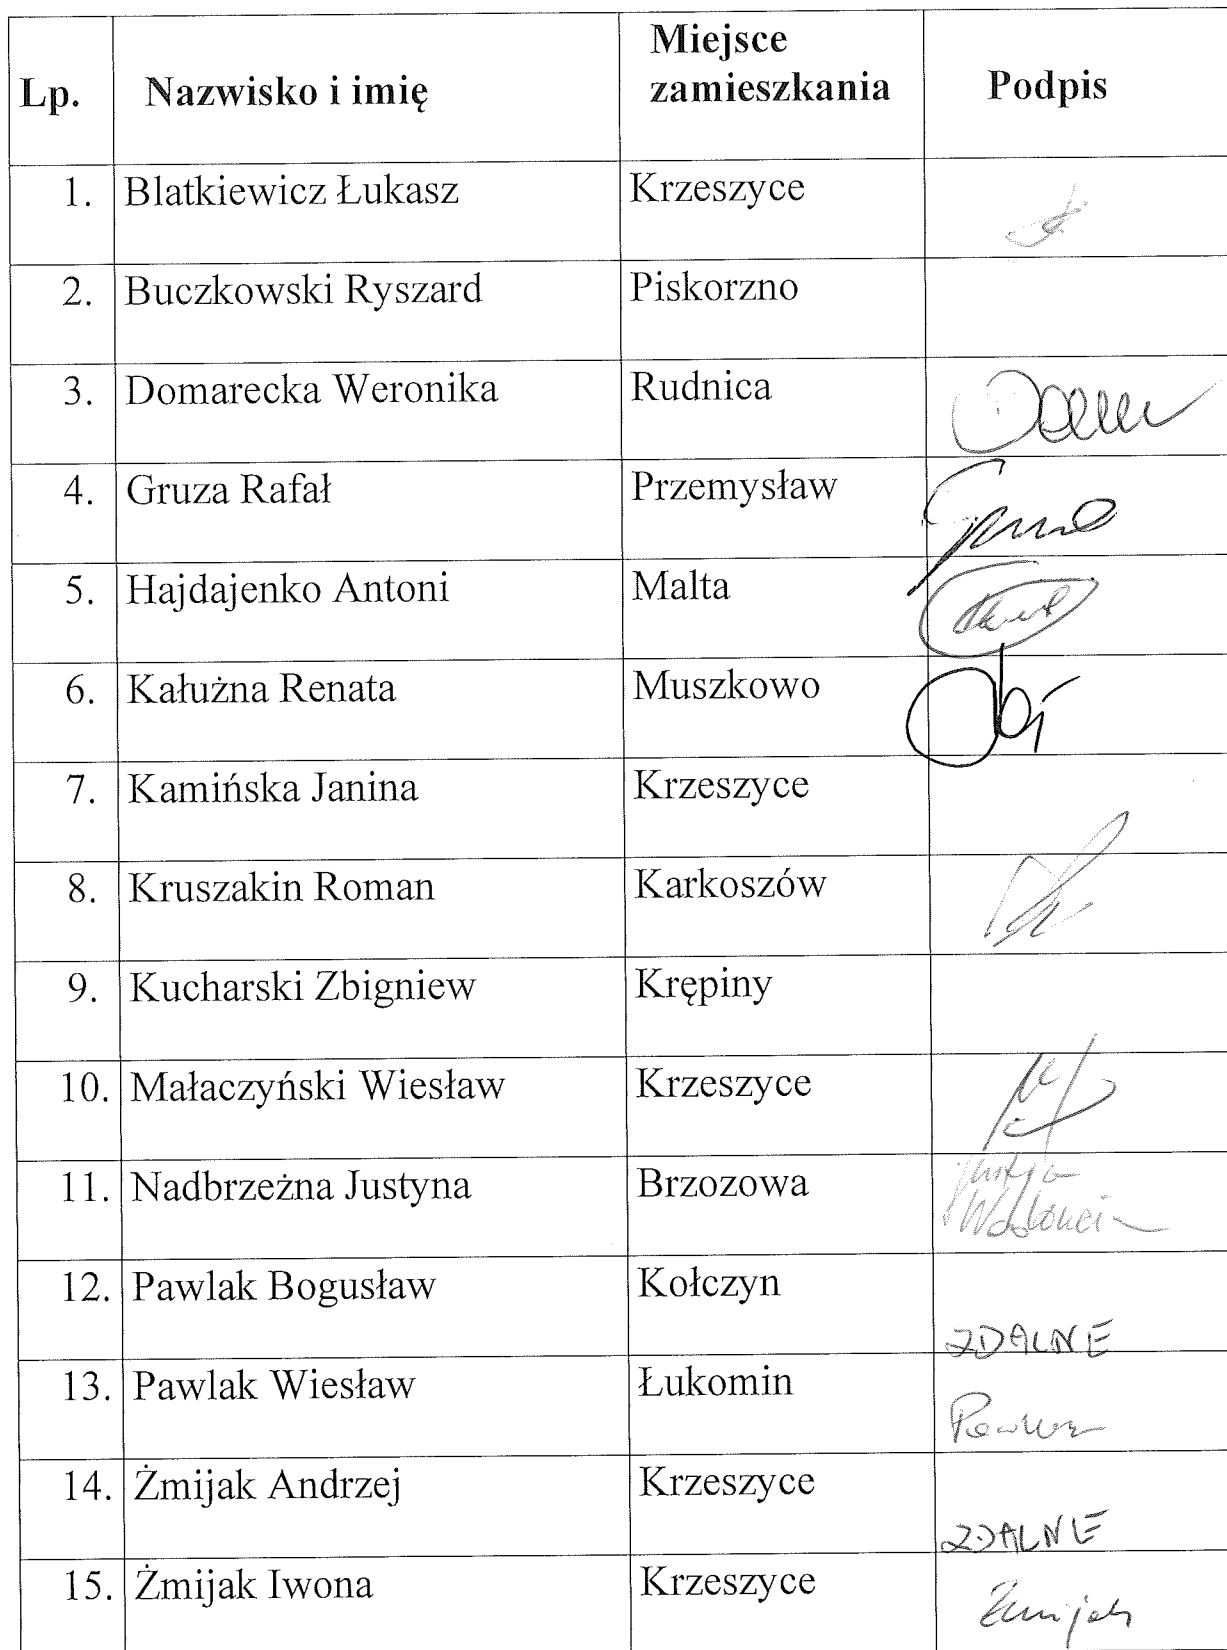 Lp. Nazwisko i imię Miejsce zamieszkania Podpis
1. Blatkiewicz Łukasz Krzeszyce
2. Buczkowski Ryszard Piskorzno
3. Domarecka Weronika Rudnica
4. Gruza Rafał Przemysław
5. Hajdajenko Antoni Malta
6. Kałużna Renata Muszkowo
7. Kamińska Janina Krzeszyce
8. Kruszakin Roman Karkoszów
9. Kucharski Zbigniew Krępiny
10. Małaczyński Wiesław Krzeszyce
11. Nadbrzeżna Justyna Brzozowa
12. Pawlak Bogusław Kołczyn ZDALNE
13. Pawlak Wiesław Łukomin
14. Żmijak Andrzej Krzeszyce ZDALNE
15. Żmijak Iwona Krzeszyce